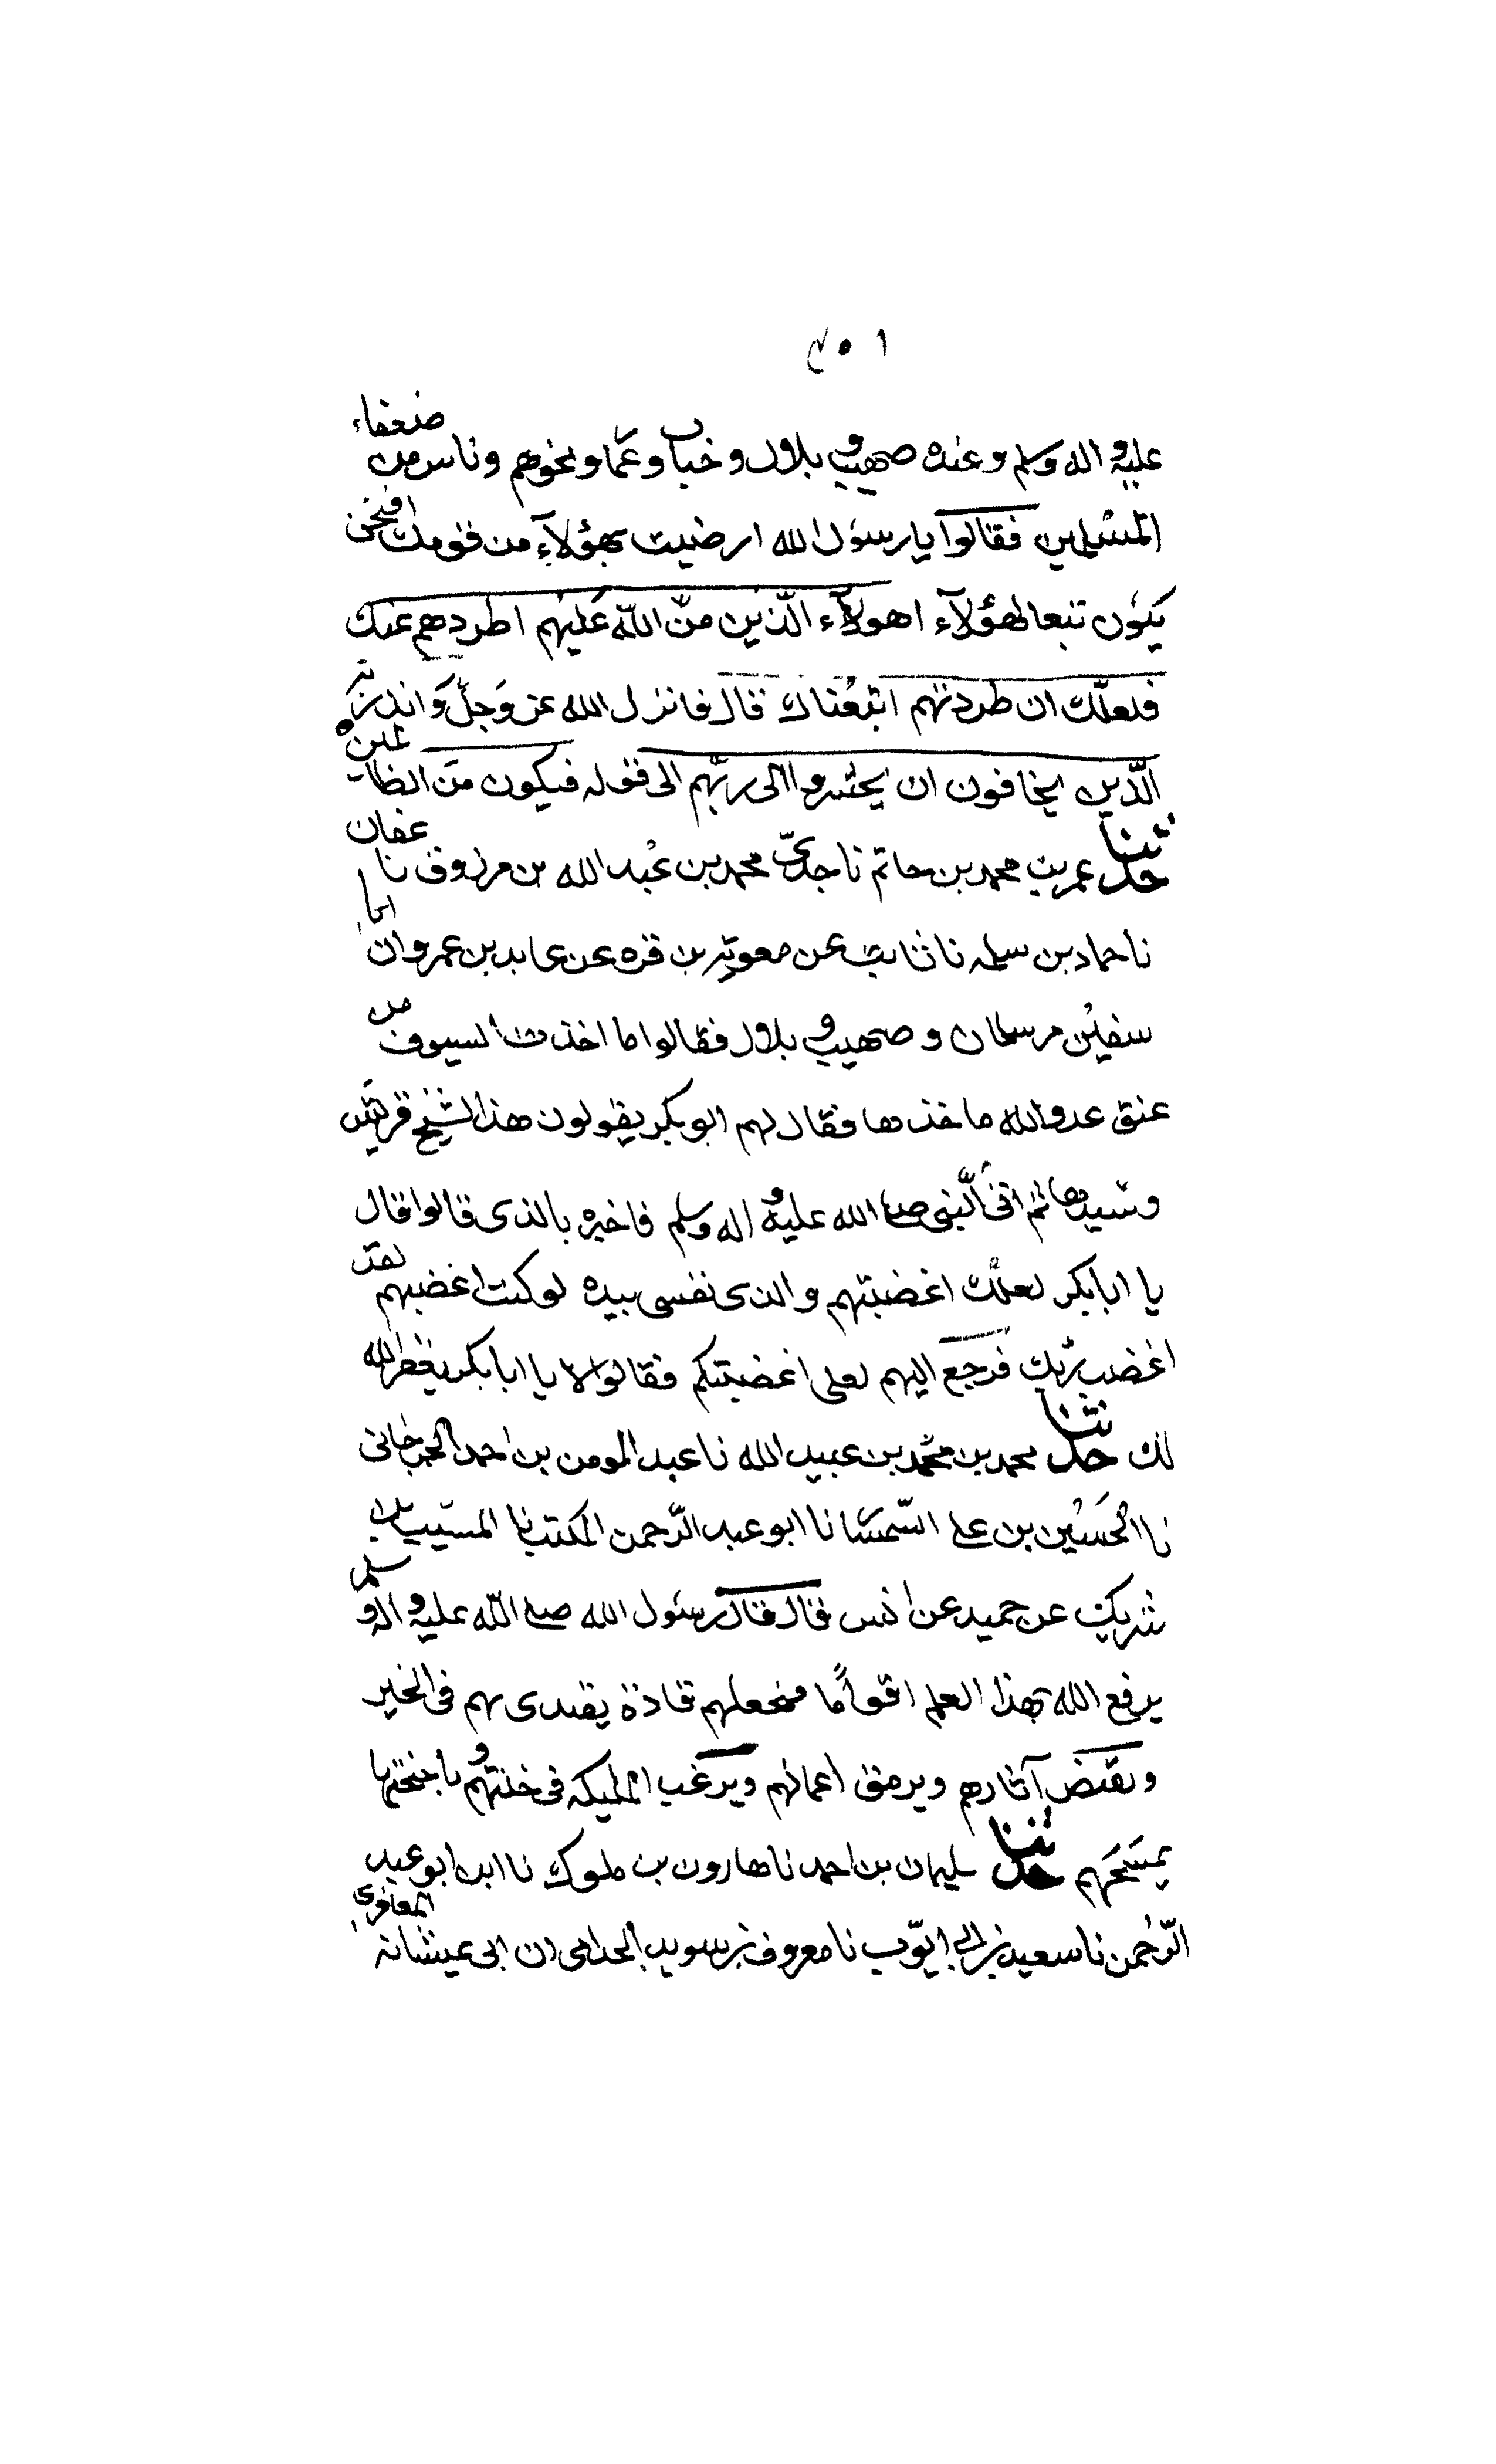 ١٥٤
عليه و اله وسلم وعنده صهيب و بلال و خباب وعمار ونحوهم وناس من ضعفاء
المسلمين فقالوا يا رسول الله ارضيت بهؤلاء من قومك افنحن
يكون تبعا لهؤلاء اهولاء الذين منّ الله عليهم اطردهم عنك
فلعلّك ان طردتهم اتبعناك قال فانزل الله عز وجلّ وانذر به
الّذين يخافون ان يحشروا الى ربّهم الى قوله فيكون من الظالمين
حدثنا عمر بن محمد بن حاتم نا جدّى محمد بن عبد الله بن مرزوق نا عفان
نا حماد بن سلمه نا ثابت عن معويه بن قره عن عايد بن عمرو ان ابا
سفين مر بسلمان و صهيب و بلال فقالوا ما اخذت السيوف من
عنق عدو الله ماخذها فقال لهم ابو بكر يقولون هذا لشيخ قريش
وسيدها ثم اتى النبي صلى الله عليه و اله وسلم فاخبره بالذى قالوا قال
يا ابا بكر لعلّك اغضبتهم والذى نفسى بيده لو كنت اغضبتهم لقد
اغضبت ربّك فرجع اليهم لعلى اغضبتكم فقالوا لا يا ابا بكر يغفر الله
لك حدثنا محمد بن محمد بن عبيد الله نا عبد المومن بن احمد الجرجانى
نا الحسين بن على السّمسار نا ابو عبد الرّحمن المكتب نا المسيب نا
شريك عن حميد عن انس قال قال رسول الله صلى الله عليه و اله و سلم
يرفع الله بهذا العلم اقواما فيجعلهم قادة يقتدى بهم فى الخير
وتقتص آثارهم ويرمق اعمالهم ويرغب المليكه فى خلتهم و باجنحتها
يمسحهم حدثنا سليمان بن احمد نا هارون بن ملوك نا ابو عبد
الرّحمن نا سعيد بن ابى ايّوب نا معروف بن سويد الجدامى ان ابى عيشانه المعافرى